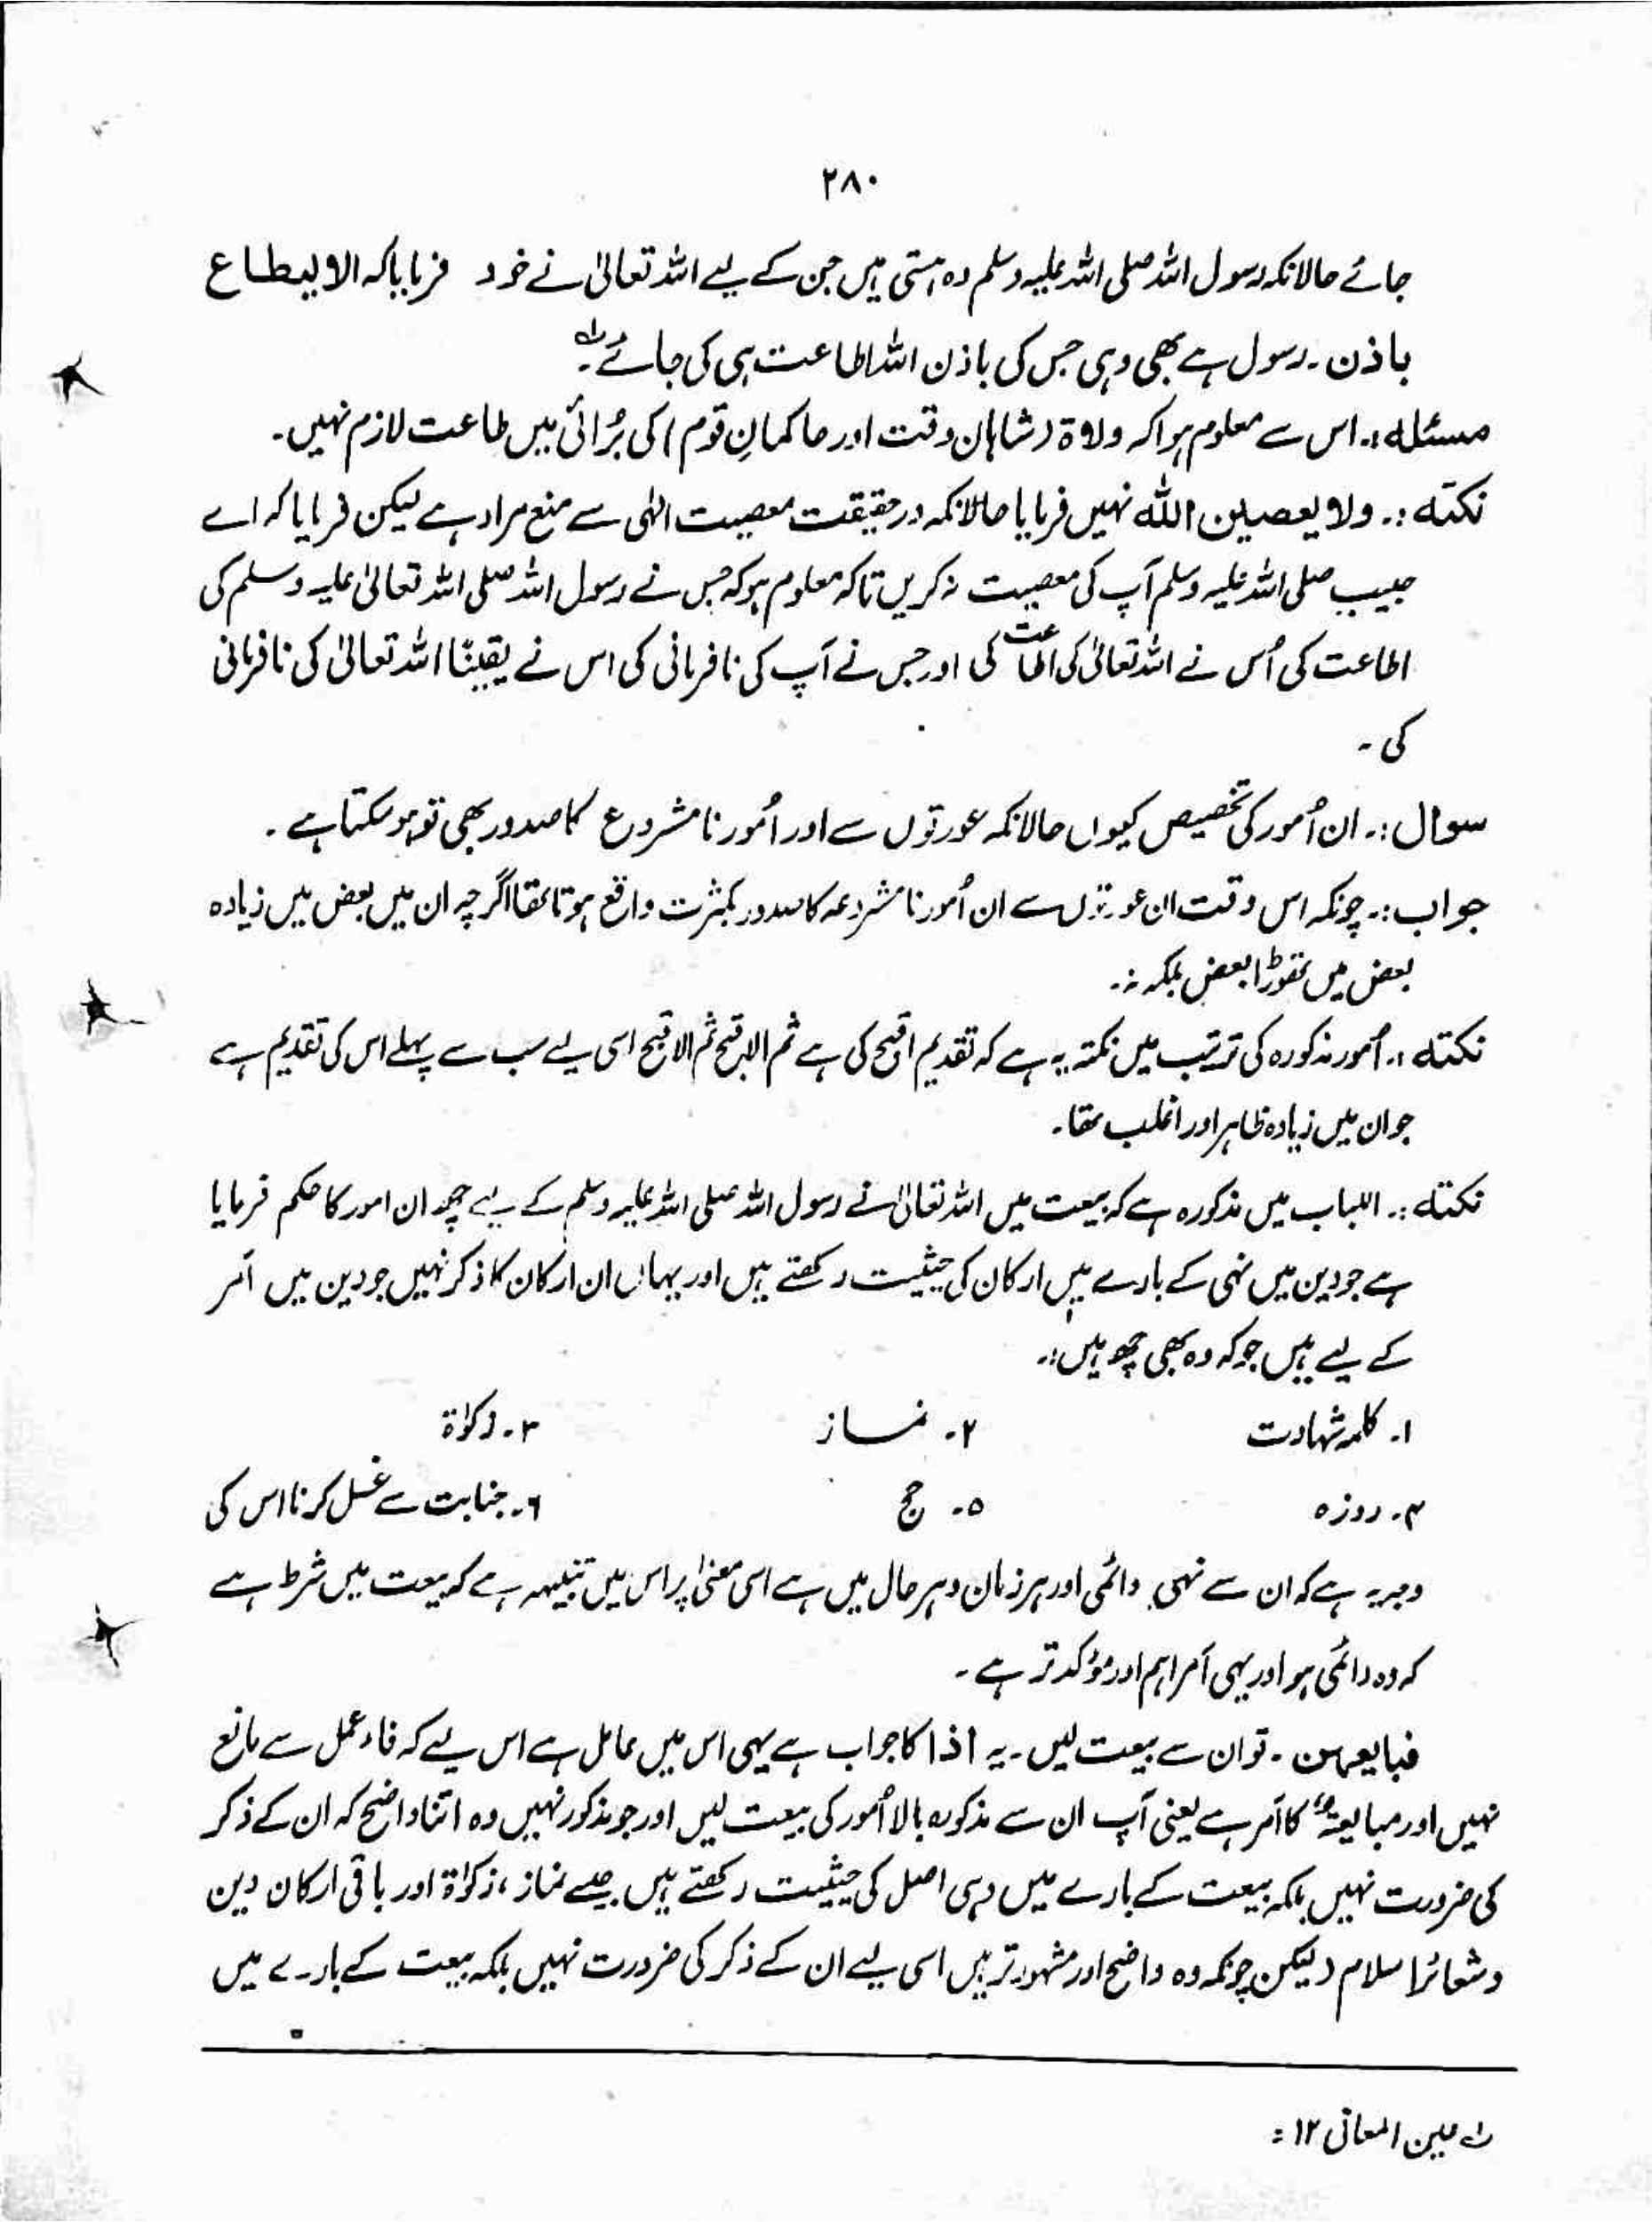 ۲۸۰
جائے حالانکہ رسول اللہ صلی اللہ علیہ وسلم وہ ہستی ہیں جن کے لیے اللہ تعالیٰ نے خود فرمایا کہ الا لیطاع
باذن ۔ رسول ہے بھی وہی جس کی باذن اللہ اطاعت ہی کی جائے لہ
مسئلہ :۔ اس سے معلوم ہوا کہ ولاۃ (شاہان وقت اور حاکمانِ قوم) کی بُرائی میں طاعت لازم نہیں ۔
نکتہ :۔ ولا یعصین اللہ نہیں فرمایا حالانکہ در حقیقت معصیت الٰہی سے منع مراد ہے لیکن فرمایا کہ اے
حبیب صلی اللہ علیہ وسلم آپ کی معصیت نہ کریں تاکہ معلوم ہو کہ جس نے رسول اللہ صلی اللہ تعالیٰ علیہ وسلم کی
اطاعت کی اُس نے اللہ تعالیٰ کی اطاعت کی اور جس نے آپ کی نافرمانی کی اس نے یقینًا اللہ تعالیٰ کی نافرمانی
کی ۔
سوال :۔ ان اُمور کی تخصیص کیوں حالانکہ عورتوں سے اور اُمور نا مشروع کا صدور بھی تو ہو سکتا ہے ۔
جواب :۔ چونکہ اس وقت ان عورتوں سے ان اُمور نا مشروعہ کا صدور بکثرت واقع ہوتا تھا اگرچہ ان میں بعض میں زیادہ
بعض میں تھوڑا بعض بلکہ نہ ۔
نکتہ :۔ اُمور مذکورہ کی ترتیب میں نکتہ یہ ہے کہ تقدیم اقبح کی ہے ثم الاقبح ثم الاقبح اسی لیے سب سے پہلے اس کی تقدیم ہے
جو ان میں زیادہ ظاہر اور اغلب تھا ۔
نکتہ :۔ اللباب میں مذکورہ ہے کہ بیعت میں اللہ تعالیٰ نے رسول اللہ صلی اللہ علیہ وسلم کے لیے چھ ان امور کا حکم فرمایا
ہے جو دین میں نہی کے بارے میں ارکان کی حیثیت رکھتے ہیں اور یہاں ان ارکان کا ذکر نہیں جو دین میں اَمر
کے لیے ہیں جو کہ وہ بھی چھ ہیں :۔
۱۔ کلمہ شہادت ۲۔ نماز ۳۔ زکوٰۃ
۴۔ روزہ ۵۔ حج ۶۔ جنابت سے غسل کرنا اس کی
وجہ یہ ہے کہ ان سے نہی دائمی اور ہر زمان و ہر حال میں ہے اسی معنیٰ پر اس میں تنبیہہ ہے کہ بیعت میں شرط ہے
کہ وہ دائمی ہو اور یہی اَمر اہم اور مؤکد تر ہے ۔
فبایعہن ۔ تو ان سے بیعت لیں ۔ یہ اذا کا جواب ہے یہی اس میں عامل ہے اس لیے کہ فاء عمل سے مانع
نہیں اور مبایعۃ کا اَمر ہے یعنی آپ ان سے مذکورہ بالا اُمور کی بیعت لیں اور جو مذکور نہیں وہ اتنا واضح کہ ان کے ذکر
کی ضرورت نہیں بلکہ بیعت کے بارے میں وہی اصل کی حیثیت رکھتے ہیں جیسے نماز ، زکوٰۃ اور باقی ارکان دین
و شعائر اسلام (لیکن چونکہ وہ واضح اور مشہور تر ہیں اسی لیے ان کے ذکر کی ضرورت نہیں بلکہ بیعت کے بارے میں
لہ عین المعانی ۱۲ :